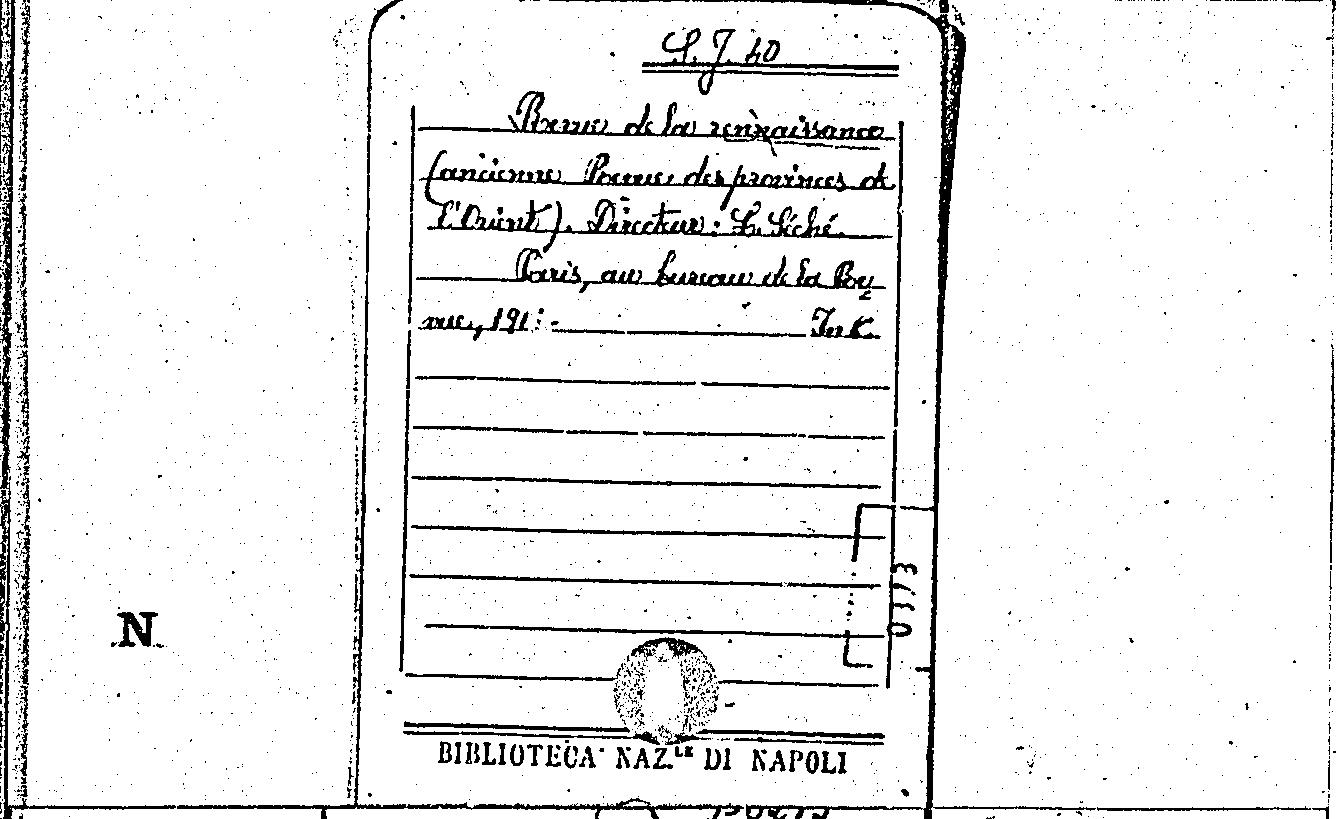 S. J. 40
Revue de la rennaissance
(ancienne Revue des provinces de
l'Orient). Directeur: L. Séché.
Paris, au bureau de la Re=
vue, 191:-
In K.
N
BIBLIOTECA NAZ.LE DI NAPOLI